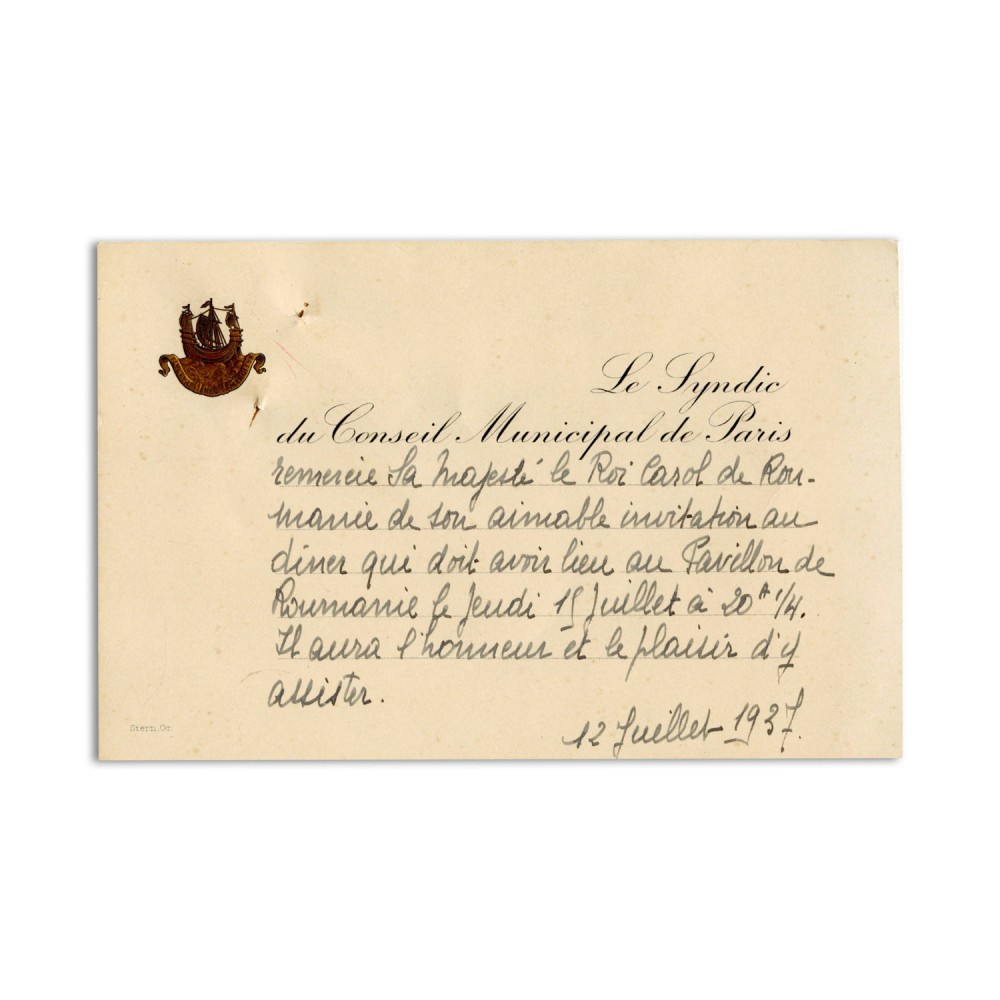 Le Syndic
du Conseil Municipal de Paris
remercie Sa Majesté le Roi Carol de Rou-
manie de son aimable invitation au
diner qui doit avoir lieu au Pavillon de
Roumanie le Jeudi 15 Juillet à 20 h 1/4.
Il aura l'honneur et le plaisir d'y
assister.
12 Juillet 1937.
Stern.Gr.